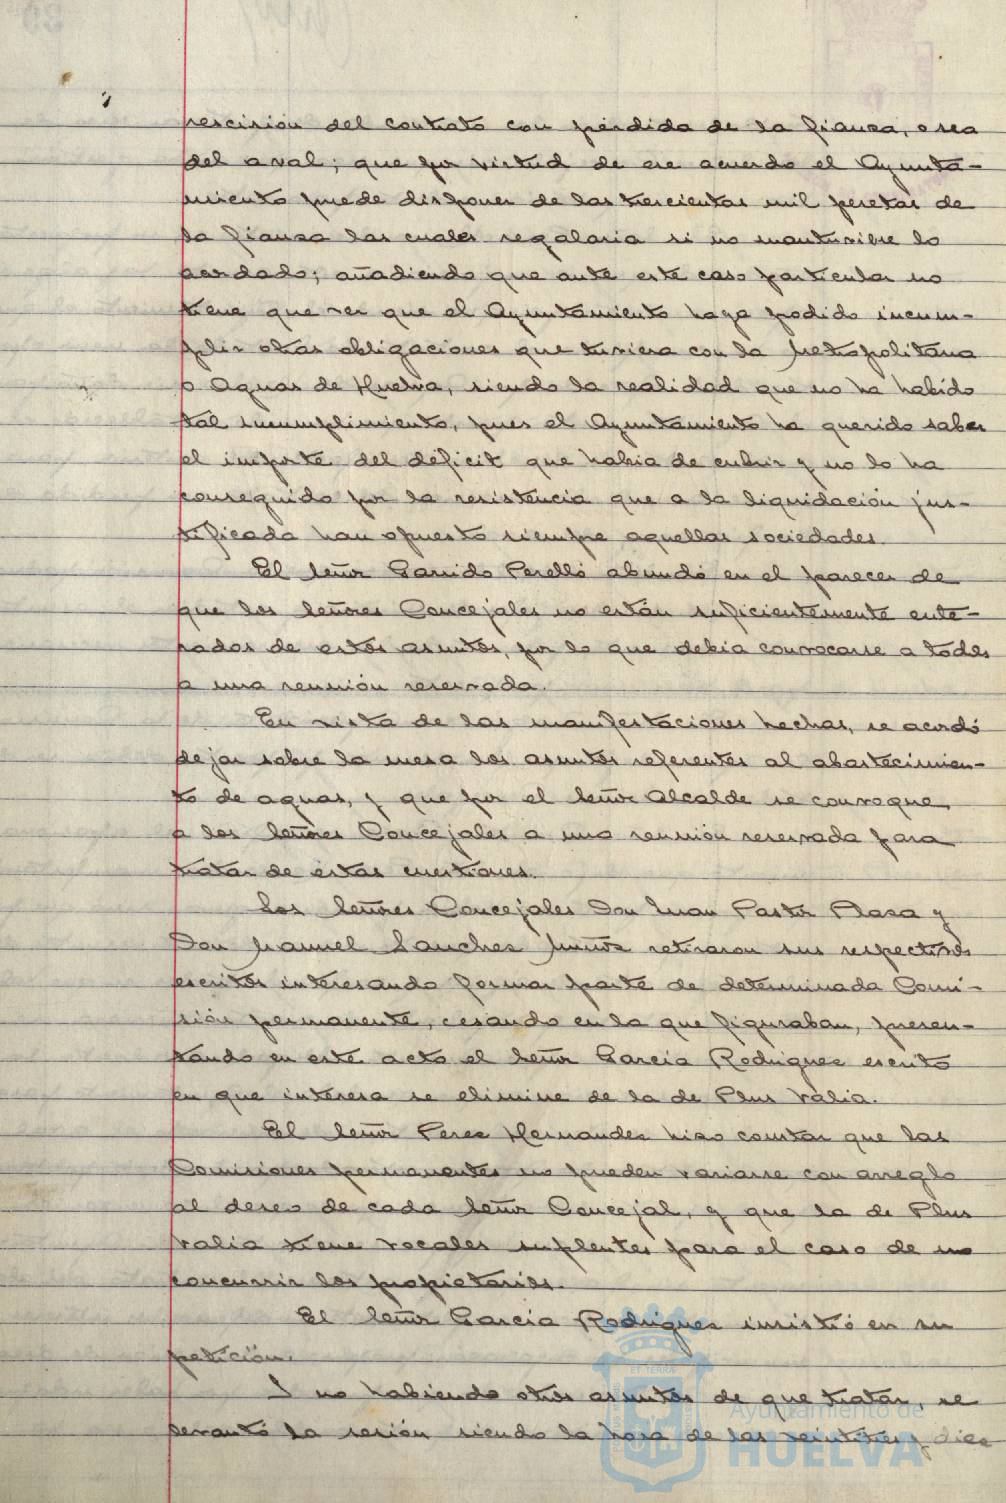 rescisión del contrato con pérdida de la fianza, o sea
del aval; que por virtud de ese acuerdo el Ayunta-
miento puede disponer de las trescientas mil pesetas de
la fianza las cuales regalaria si no mantuviese lo
acordado; añadiendo que ante este caso particular no
tiene que ver que el Ayuntamiento haya podido incum-
plir otras obligaciones que tuviera con la Metropolitana
o Aguas de Huelva, siendo la realidad que no ha habido
tal incumplimiento, pues el Ayuntamiento ha querido saber
el importe del déficit que habia de cubrir y no lo ha
conseguido por la resistencia que a la liquidación jus-
tificada han opuesto siempre aquellas sociedades.
El Señor Garrido Perelló abundó en el parecer de
que los Señores Concejales no están suficientemente ente-
rados de estos asuntos, por lo que debia convocarse a todos
a una reunión reservada.
En vista de las manifestaciones hechas, se acordó
dejar sobre la mesa los asuntos referentes al abastecimien-
to de aguas, y que por el Señor Alcalde se convoque
a los Señores Concejales a una reunión reservada para
tratar de estas cuestiones.
Los Señores Concejales Don Juan Pastor Plaza y
Don Manuel Sanchez Muñoz retiraron sus respectivos
escritos interesando formar parte de determinada Comi-
sión permanente, cesando en la que figuraban, presen-
tando en este acto el Señor Garcia Rodriguez escrito
en que interesa se elimine de la de Plus Valia.
El Señor Perez Hernandez hizo constar que las
Comisiones permanentes no pueden variarse con arreglo
al deseo de cada Señor Concejal, y que la de Plus
valia tiene vocales suplentes para el caso de no
concurrir los propietarios.
El Señor Garcia Rodriguez insistió en su
petición.
I no habiendo otros asuntos de que tratar, se
levantó la sesión siendo la hora de las veintitres y diez
ET TERRA
Ayuntamiento de
HUELVA